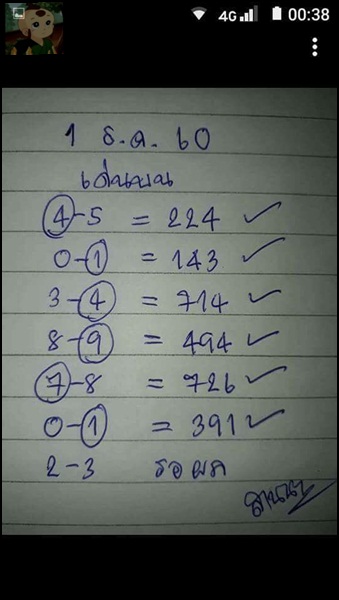 4G 00:38
1 ธ.ค. 60
เด่นบน
4-5 = 224 ✓
0-1 = 143 ✓
3-4 = 714 ✓
8-9 = 494 ✓
7-8 = 726 ✓
0-1 = 391 ✓
2-3 รอผล
ลานนา